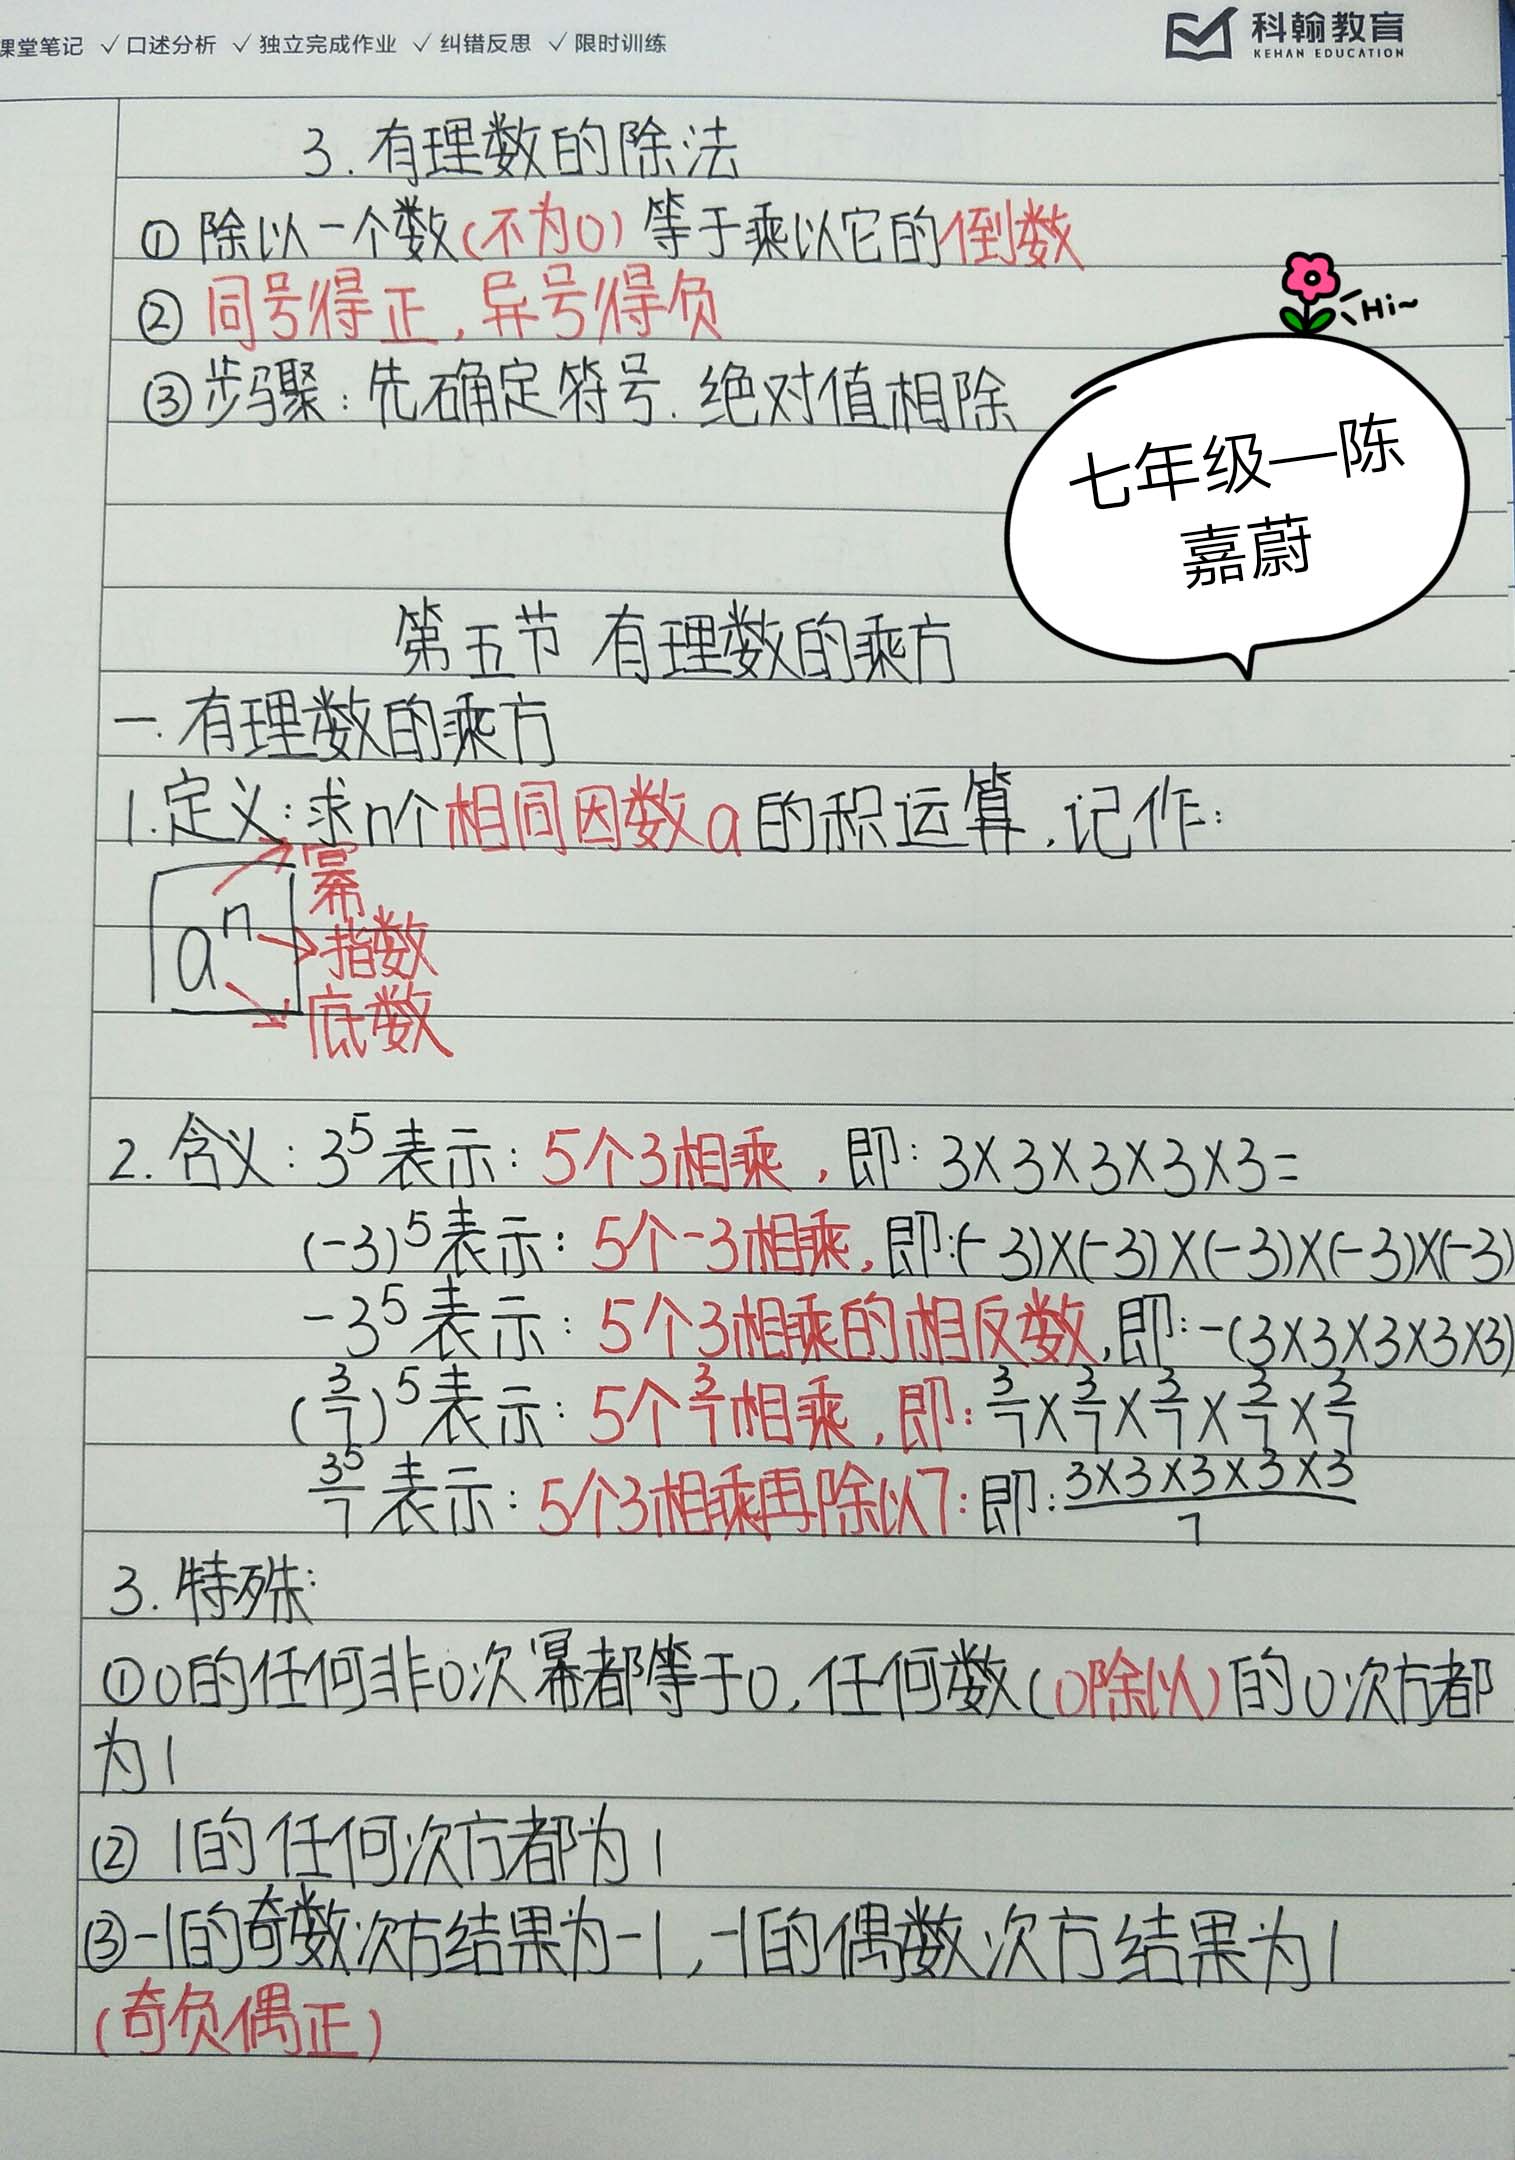 课堂笔记 ✓口述分析 ✓独立完成作业 ✓纠错反思 ✓限时训练
科翰教育
KEHAN EDUCATION
3.有理数的除法
①除以一个数(不为0)等于乘以它的倒数
②同号得正,异号得负
Hi~
③步骤:先确定符号.绝对值相除
七年级—陈
嘉蔚
第五节 有理数的乘方
一.有理数的乘方
1.定义:求n个相同因数a的积运算,记作:
幂
aⁿ 指数
底数
2.含义:3⁵表示:5个3相乘,即:3×3×3×3×3=
(-3)⁵表示:5个-3相乘,即:(-3)×(-3)×(-3)×(-3)×(-3)
-3⁵表示:5个3相乘的相反数,即:-(3×3×3×3×3)
(3/7)⁵表示:5个3/7相乘,即:3/7×3/7×3/7×3/7×3/7
3⁵/7表示:5个3相乘再除以7:即:3×3×3×3×3/7
3.特殊:
①0的任何非0次幂都等于0,任何数(0除以)的0次方都
为1
②1的任何次方都为1
③-1的奇数次方结果为-1,-1的偶数次方结果为1
(奇负偶正)